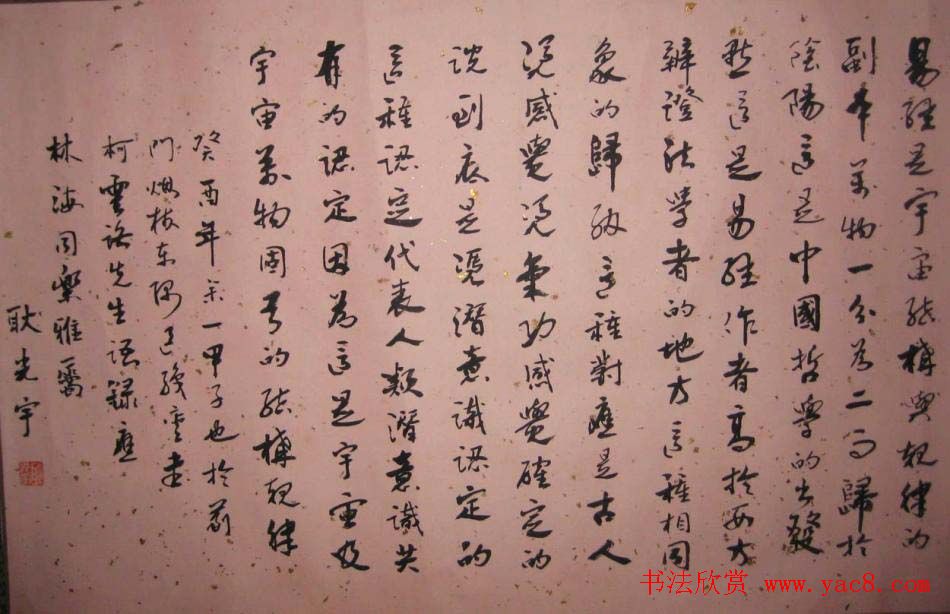 易經是宇宙結構與規律的
副本萬物一分為二而歸於
陰陽這是中國哲學的出發
點這是易經作者高於西方
辯證法學者的地方這種相同
象的歸納這種對應是古人
憑感覺憑氣功感覺確定的
說到底是憑潛意識認定的
這種認定代表人類潛意識共
有的認定因為這是宇宙及
宇宙萬物固有的結構規律
癸酉年余一甲子也於
門烟樹東隅
柯雲路先生語錄應
林海同學雅屬
耿光宇
书法欣赏 www.yac8.com